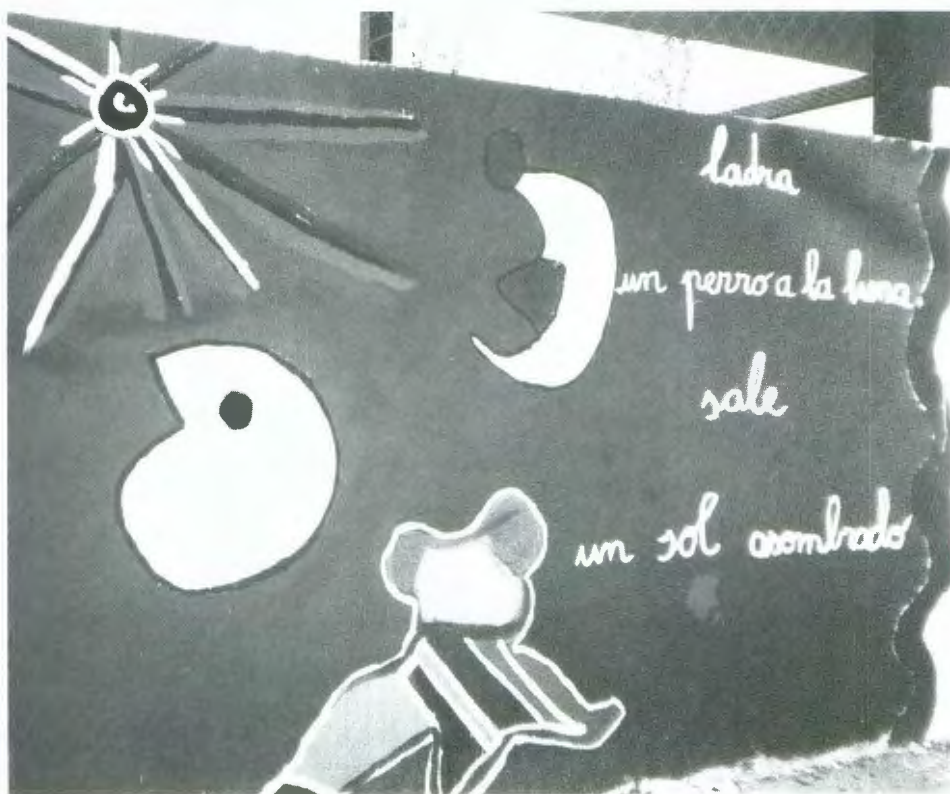 ladra
un perro a la luna
sale
un sol asombrado